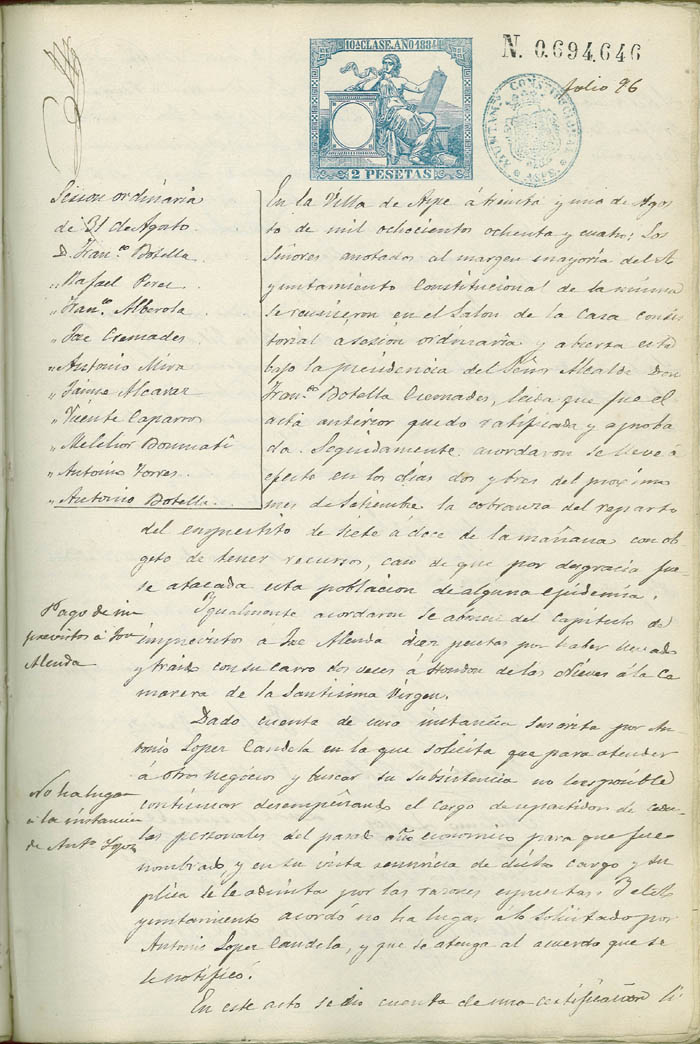 10ª CLASE. AÑO 1884
2 PESETAS
N. 0.694.646
folio 96
AYUNTAMTO CONSTITUCIONAL
ASPE
Sesion ordinaria
de 31 de Agosto
D. Franco Botella
" Rafael Perez
" Franco Alberola
" Joe Cremades
" Antonio Mira
" Jaime Alcaraz
" Vicente Caparros
" Melchior Bonmati
" Antonio Torres
" Antonio Botella
En la Villa de Aspe á treinta y uno de Agos
to de mil ochocientos ochenta y cuatro; Los
Señores anotados al margen mayoria del A
yuntamiento Constitucional de la misma
se reunieron en el Salon de la Casa consis
torial a sesion ordinaria y abierta esta
bajo la presidencia del Señor Alcalde don
Franco Botella Cremades, leida que fue el
acta anterior quedo ratificada y aproba
da. Seguidamente acordaron se lleve á
efecto en los dias dos y tres del proximo
mes de Setiembre la cobranza del reparto
del empréstito de siete á doce de la mañana con ob
geto de tener recursos, caso de que por desgracia fue-
se atacada esta poblacion de alguna epidemia.
Pago de im
previstos á Joe
Alenda
Igualmente acordaron se abonen del capitulo de
imprevistos a Joe Alenda diez pesetas por haber llevado
y traido con su carro dos veces á Hondon de las Nieves á la Ca
marera de la Santisima Virgen.
Dado cuenta de una instancia suscrita por An
tonio Lopez Candela en la que solicita que para atender
á otros negocios y buscar su subsistencia no le es posible
No ha lugar
á la instancia
de Anto Lopez
continuar desempeñando el cargo de repartidor de cedu
las personales del pasado año economico para que fue
nombrado, y en su vista renuncia de dicho cargo y su
plica se le admita por las razones espuestas. Y el A
yuntamiento acordó no ha lugar á lo solicitado por
Antonio Lopez Candela, y que se atenga al acuerdo que se
le notificó.
En este acto se dio cuenta de una certificacion li